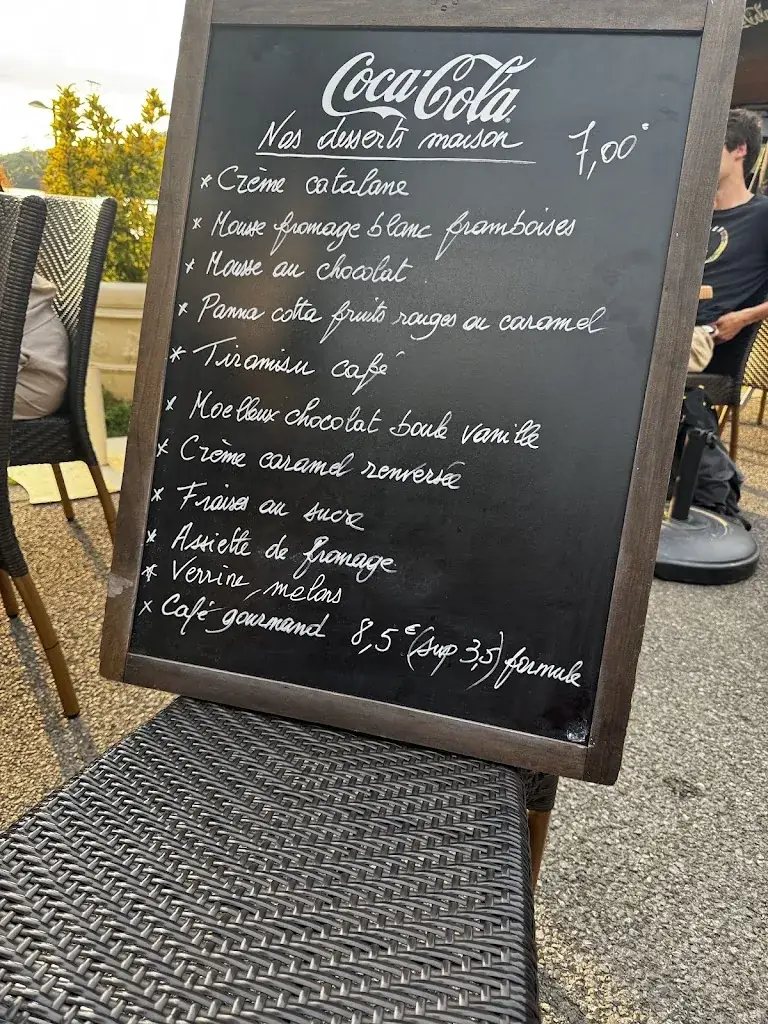 Coca-Cola
Nos desserts maison 7,00€
* Crème catalane
* Mousse fromage blanc framboises
* Mousse au chocolat
* Panna cotta fruits rouges ou caramel
* Tiramisu café
* Moelleux chocolat boule vanille
* Crème caramel renversée
* Fraises au sucre
* Assiette de fromage
* Verrine melons
* Café gourmand 8,5€ (sup 3,5) formule